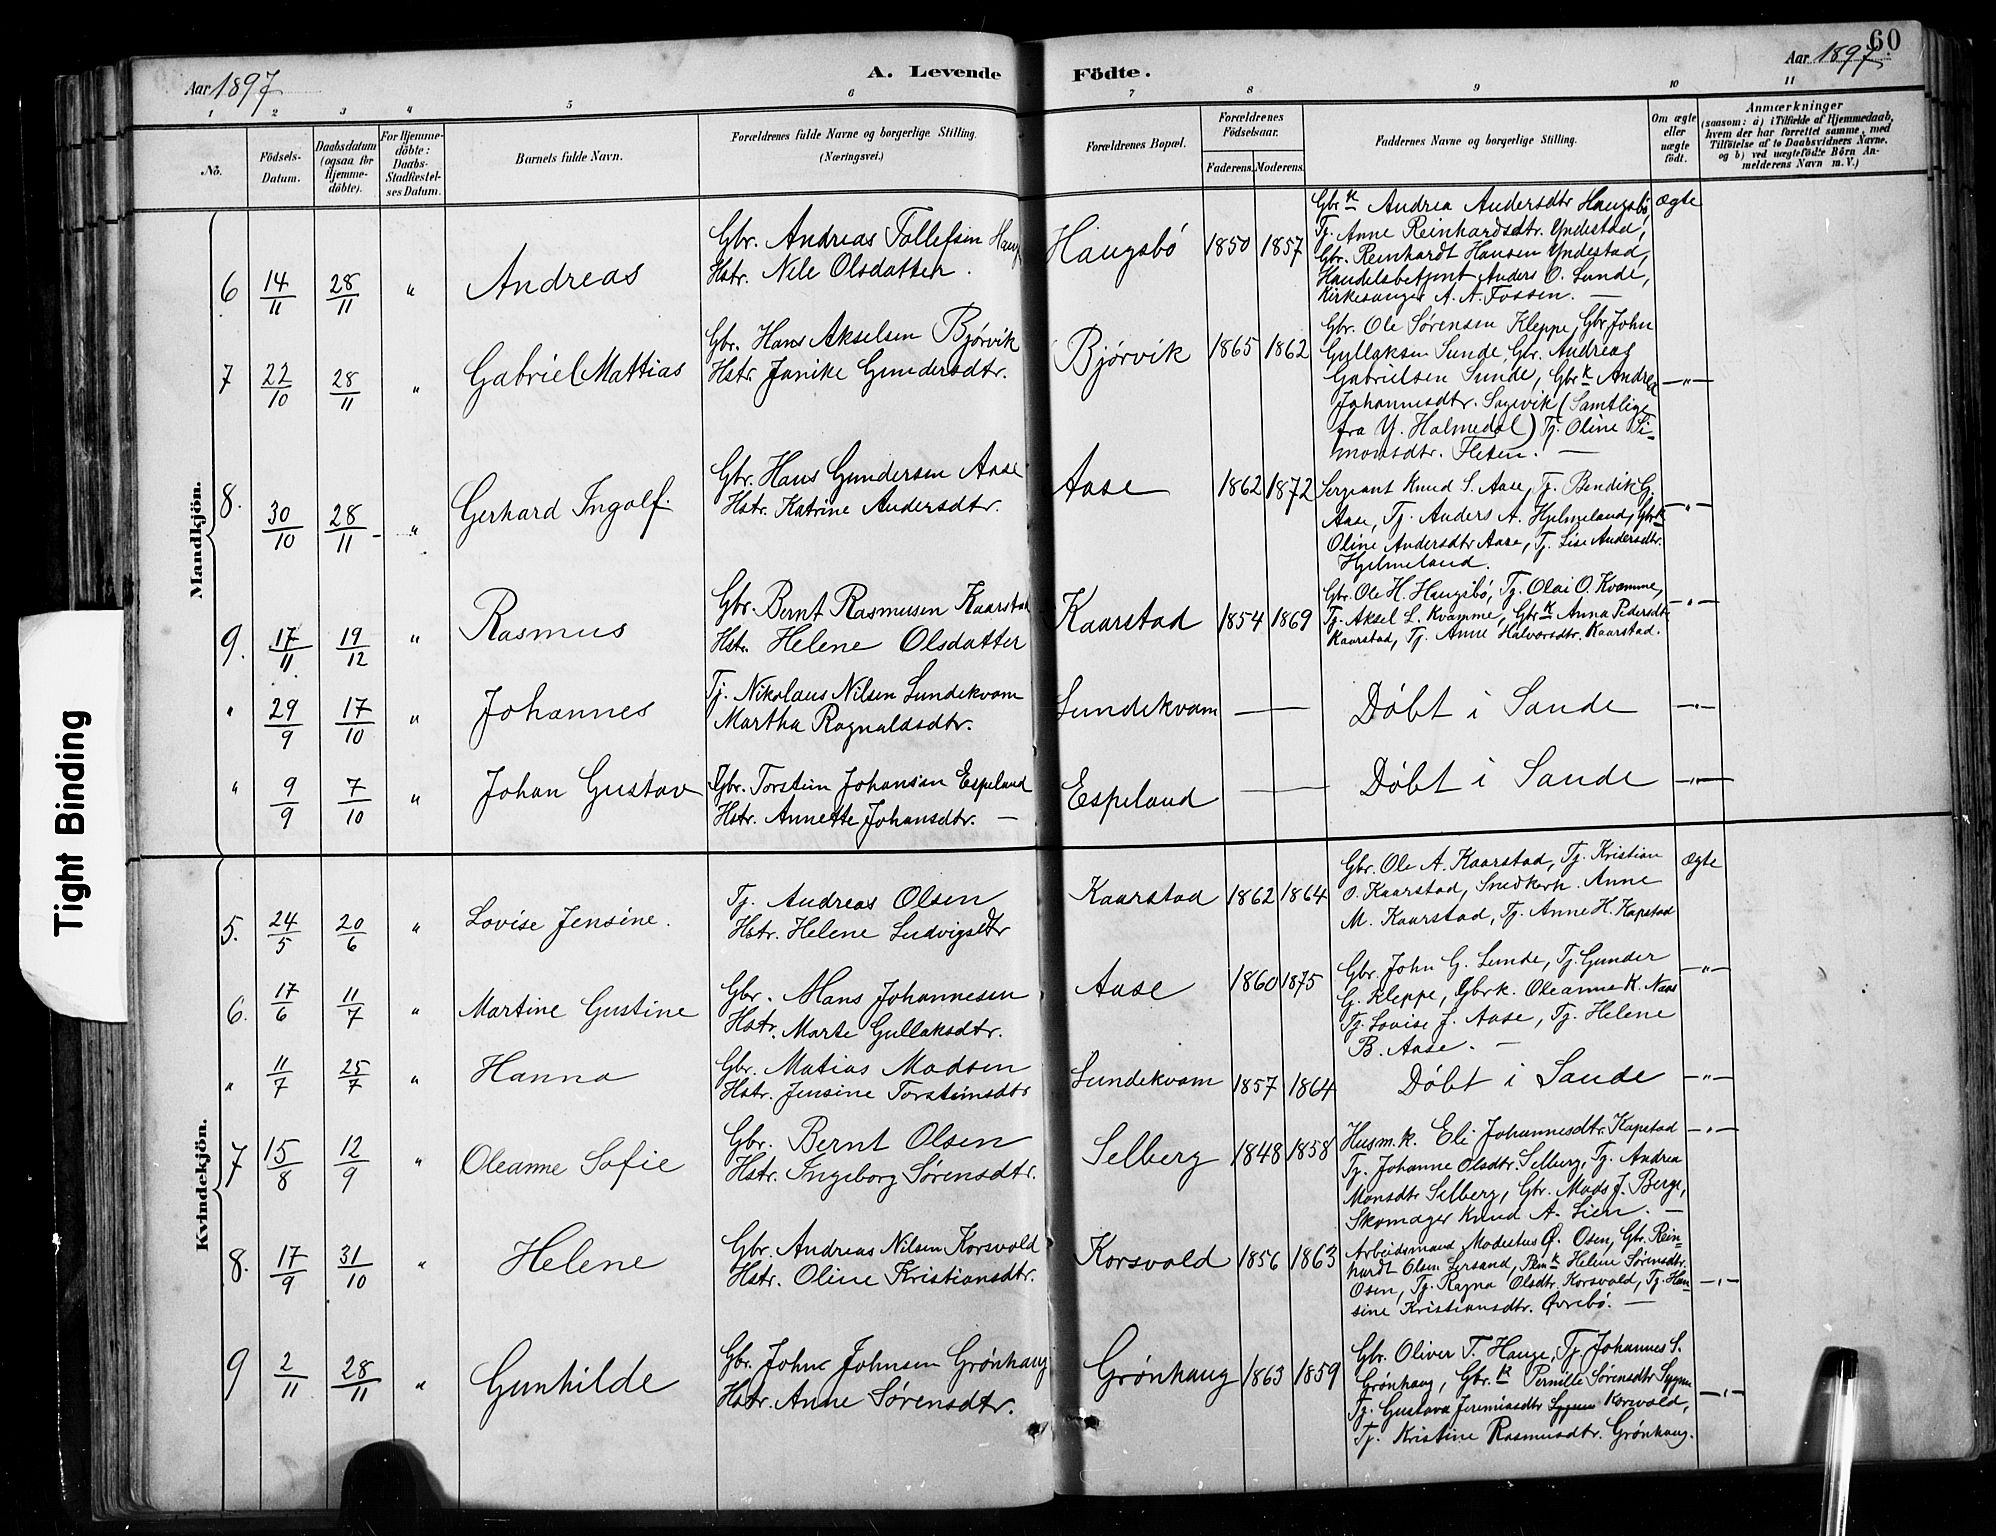 60
Aar 1897
A. Levende Födte.
Aar 1897
1 2 3 4 5 6 7 8 9 10 11
No.
Födsels-Datum.
Daabsdatum (ogsaa for Hjemme-döbte).
For Hjemme-döbte: Daabs-Stadfæstel-ses Datum.
Barnets fulde Navn.
Forældrenes fulde Navne og borgerlige Stilling. (Næringsvei.)
Forældrenes Bopæl.
Forældrenes Födselsaar.
Faderens. Moderens.
Faddernes Navne og borgerlige Stilling.
Om ægte eller uægte födt.
Anmærkninger
(saasom: a) i Tilfælde af Hjemmedaab,
hvem der har forrettet samme, med
Tilföielse af to Daabsvidners Navne.
og b) ved uægtefödte Börn An-
melderens Navn m. V.)
Mandkjön.
6 14/11 28/11 " Andreas
Gbr. Andreas Tollefsen Haug
Hstr. Nele Olsdatter.
Haugsbö 1850 1857
Gbr k Andrea Andersdtr Haugsbö,
Tj. Anne Reinhardsdtr. Yndestad,
Gbr. Reinhardt Hansen Yndestad,
Handelsbetjent Anders O. Sunde,
Kirkesanger A. A. Fossen. —
ægte
7 22/10 28/11 " Gabriel Mattias
Gbr. Hans Akselsen Bjørvik
Hstr. Janike Gundersdtr.
Bjørvik 1865 1862
Gbr. Ole Sørensen Kleppe, Gbr. John
Gullaksen Sunde, Gbr. Andreas
Gabrielsen Sunde, Gbr k Andrea
Johannesdtr. Sagevik (Samtlige
fra Y. Holmedal) Tj. Oline Si-
monsdtr. Fleten. —
—"—
8. 30/10 28/11 " Gerhard Ingolf.
Gbr. Hans Gundersen Aase
Hstr. Katrine Andersdtr.
Aase 1862 1872
Sergeant Knud S. Aase, Tj. Bendik G.
Aase, Tj. Anders A. Hjelmeland, Gbr k
Oline Andersdtr Aase, Tj. Lise Andersdtr.
Hjelmeland.
—"—
9. 17/11 19/12 " Rasmus
Gbr. Bernt Rasmusen Kaarstad
Hstr. Helene Olsdatter
Kaarstad 1854 1869
Gbr. Ole H. Haugsbö, Tj. Olai O. Kvamme,
Tj. Aksel L. Kvamme, Gbr k Anna Pedersdtr
Kaarstad, Tj. Anne Halvorsdtr. Kaarstad.
—"—
" 29/9 17/10 " Johannes
Tj. Nikolaus Nilsen Sundekvam
Martha Ragnaldsdtr.
Sundekvam — Døbt i Sande —"—
" 9/9 7/10 " Johan Gustav
Gbr. Torstein Johansen Espeland
Hstr. Annette Johansdtr. —
Espeland — Døbt i Sande —"—
Kvindekjön.
5. 24/5 20/6 " Lovise Jensine.
Tj. Andreas Olsen
Hstr. Helene Ludvigsdtr
Kaarstad 1862 1864
Gbr. Ole A. Kaarstad, Tj. Kristian
O. Kaarstad, Snedkerk. Anne
M. Kaarstad, Tj. Anne H. Kapstad
ægte
6. 17/6 11/7 " Martine Gustine
Gbr. Hans Johannesen
Hstr. Marte Gullaksdtr.
Aase 1860 1875
Gbr. John G. Sunde, Tj. Gunder
G. Kleppe, Gbrk. Oleanna K. Næs
Tj. Lovise J. Aase, Tj. Helene
B. Aase. —
—"—
" 11/7 25/7 " Hanna
Gbr. Matias Madsen
Hstr. Jensine Torsteinsdtr
Sundekvam 1857 1864 Døbt i Sande —"—
7 15/8 12/9 " Oleanne Sofie
Gbr. Bernt Olsen
Hstr. Ingeborg Sørensdtr.
Selberg 1848 1858
Husm.k. Eli Johannesdtr. Kapstad
Tj. Johanne Olsdtr. Selberg, Tj. Andrea
Monsdtr Selberg, Gbr. Mads J. Berge,
Skomager Knud A. Lien. —
—"—
8. 17/9 31/10 " Helene
Gbr. Andreas Nilsen Korsvold
Hstr. Oline Kristiansdtr.
Korsvold 1856 1863
Arbeidsmand Modestus O. Osen, Gbr. Rein-
hardt Olsen Lersand, k Helene Sørensdtr.
Osen, Tj. Ragna Olsdtr. Korsvold, Tj. Han-
sine Kristiansdtr. Øvrebö. —
—"—
9 2/11 28/11 " Gunhilde
Gbr. John Johnsen Grönhaug
Hstr. Anne Sørensdtr.
Grönhaug 1863 1859
Gbr. Oliver T. Hauge, Tj. Johannes S.
Grönhaug, Gbr. k Pernille Sørensdtr Sygna
Tj. Gustava Jeremiasdtr Korsvold,
Tj. Kristine Rasmusdtr. Grönhaug.
—"—
Tight Binding